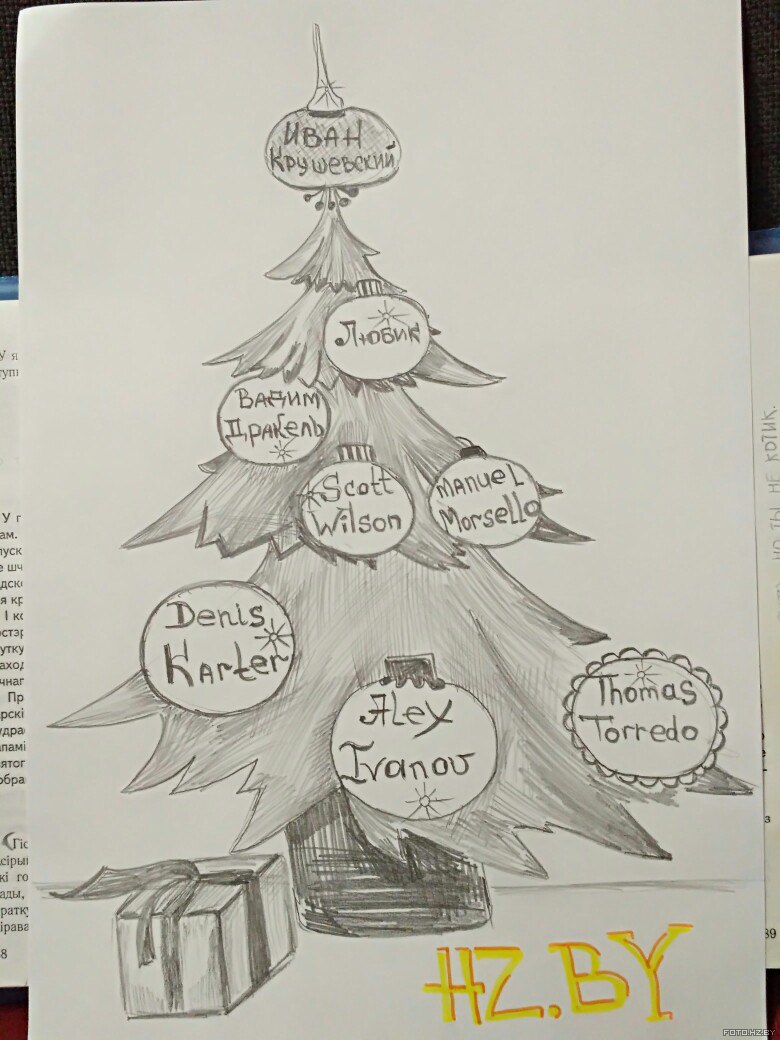 ИВАН
Крушевский
Любик
Вадим
Дракель
Scott
Wilson
Manuel
Morsello
Denis
Karter
Alex
Ivanov
Thomas
Torredo
HZ.BY
НО ТЫ НЕ КОТИК.
88
89
FOTO.HZ.BY